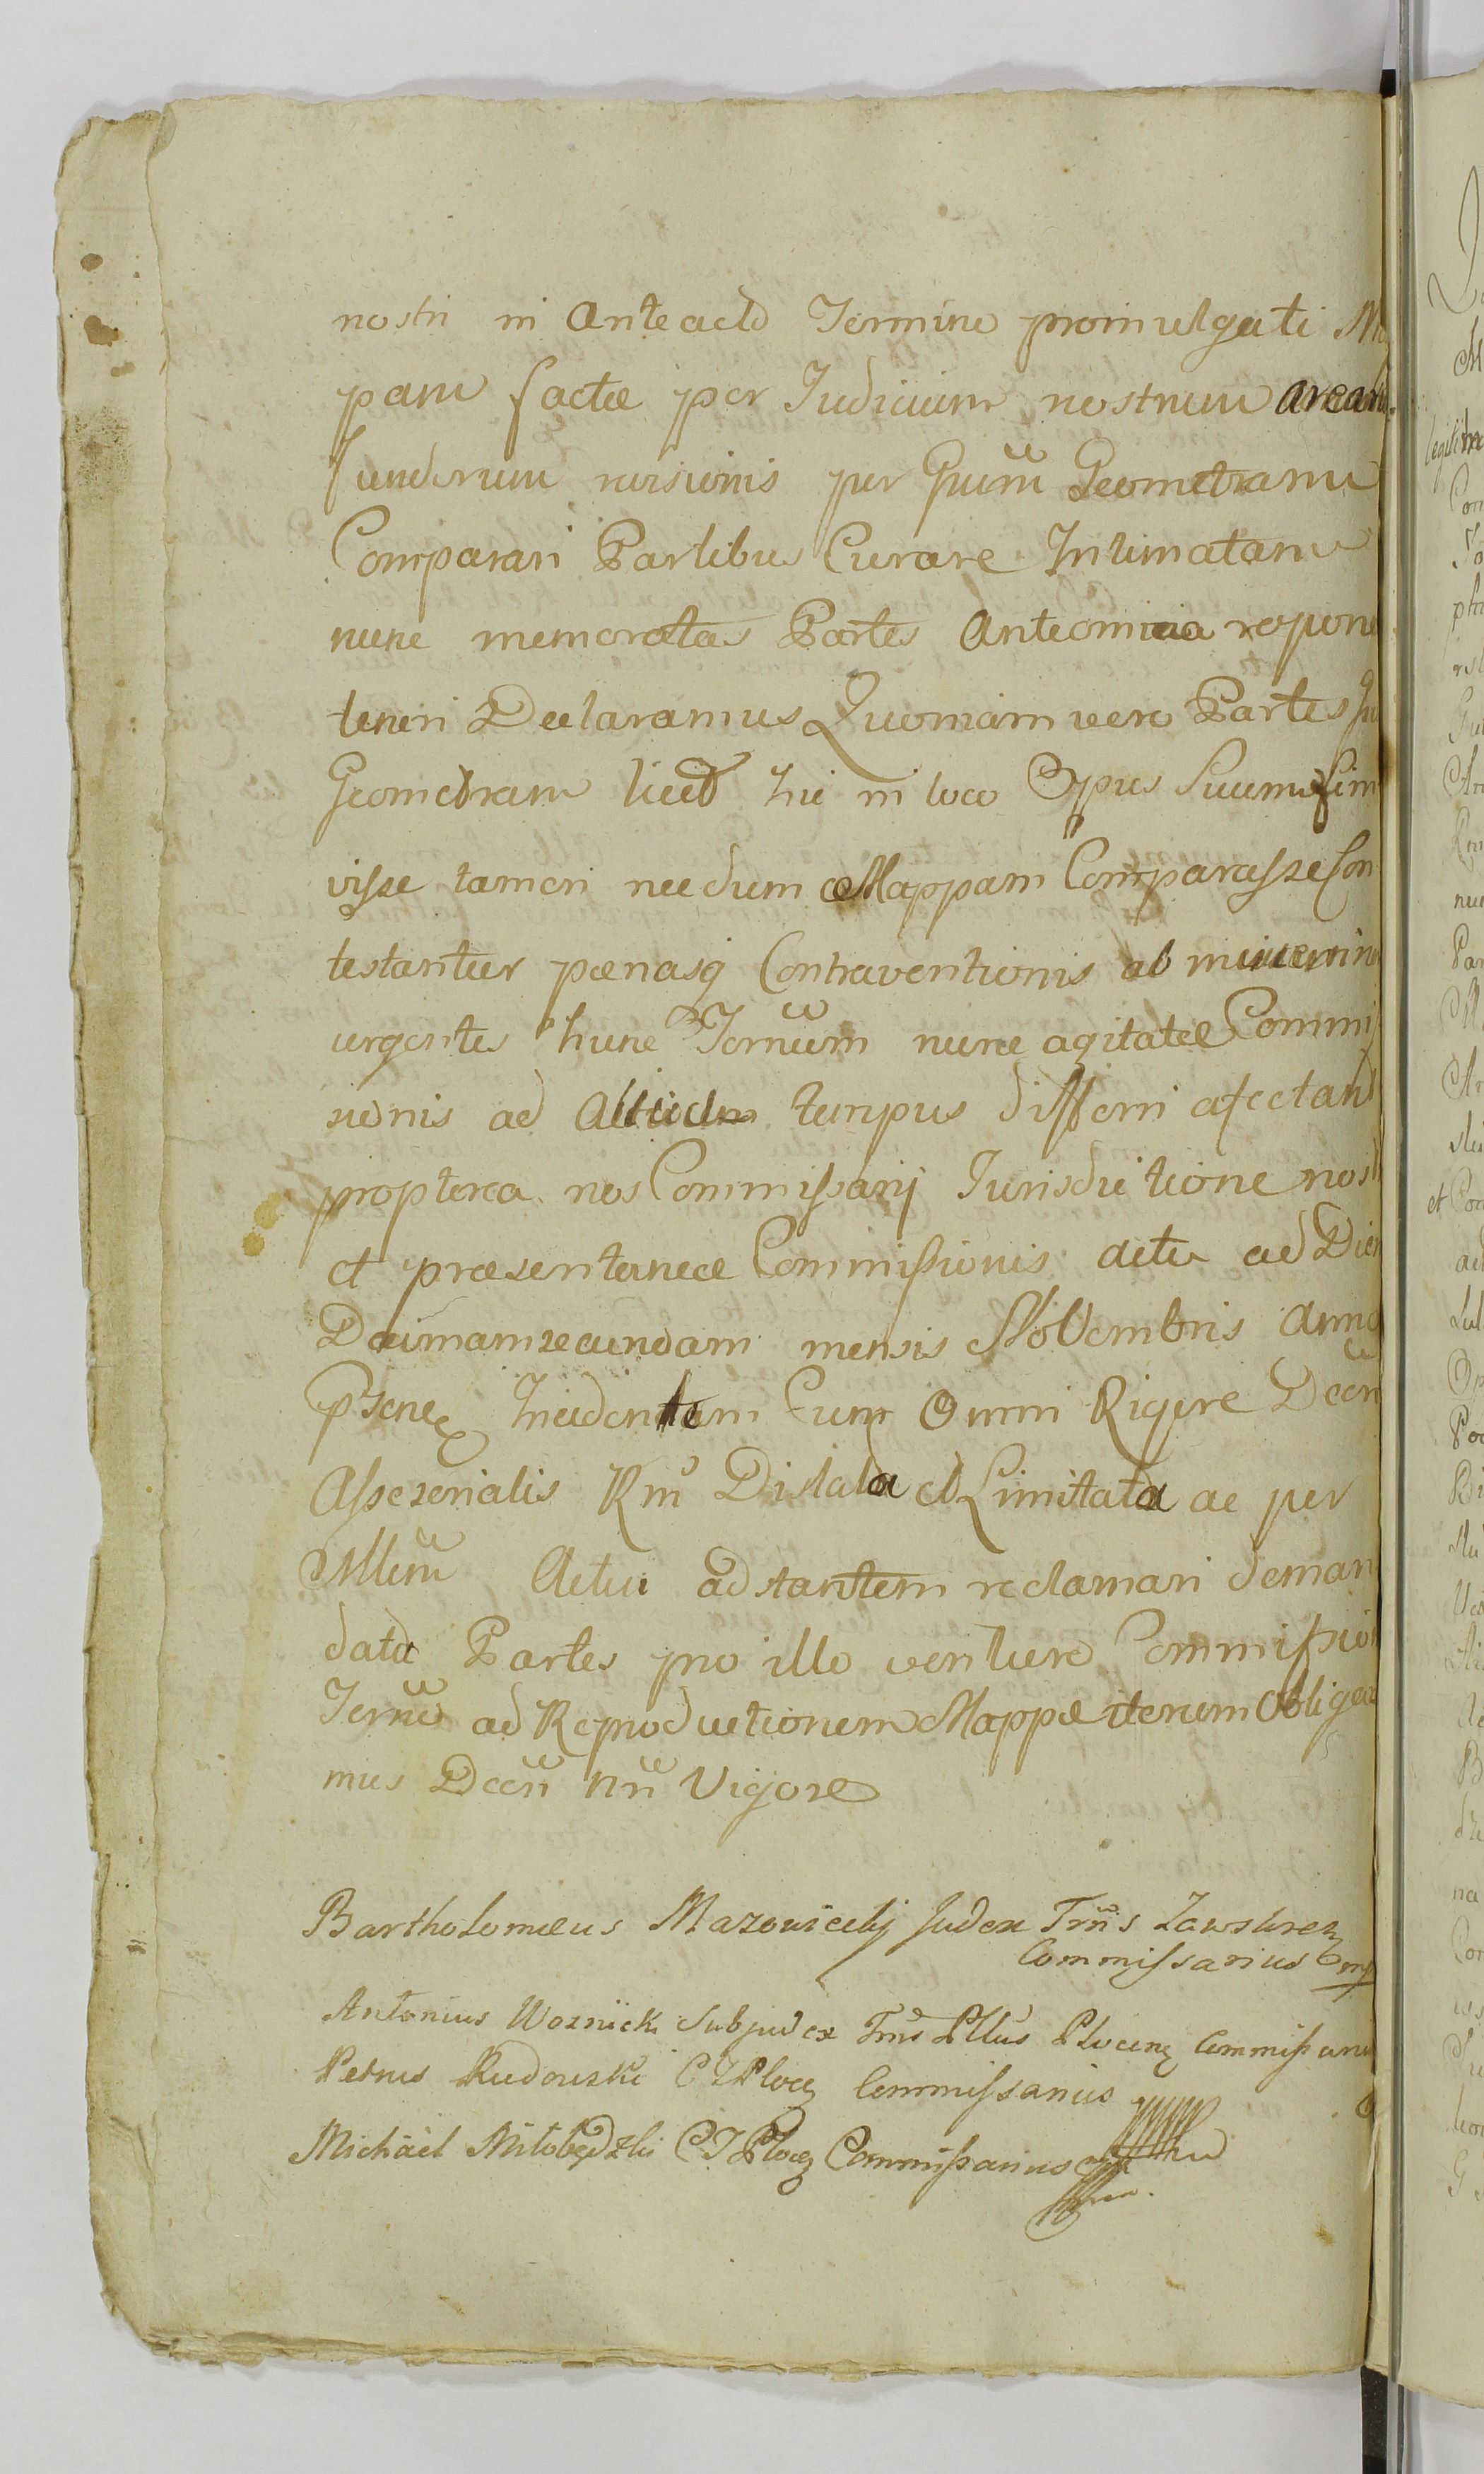 nostri in anteacto Termino promulgati Ma
pam factæ per Judicium nostrum arearū
fundorum revisionis per Gnūm Geometram
Comparari Partibus Curare Intimatam
nunc memoratas Partes Anteomnia repone
teneri Declaramus Quoniam vero Partes
Geometram licet hic in loco Opus Suum fini
visse tamen necdum Mappam Comparasse Con
testantur pænasq Contraventionis ab invicem
urgentes hunc Ternūm nunc agitatæ Commis
sionis ad tempus differri afectant
propterea nos Commissarij Jurisdictione nost
et præsentaneæ Commissionis actu ad Diem
Decimamsecundam mensis Novembris Anno
pttene Incidentem Cum Omni Rigore Decr
Assesorialis Rni Dislata et Limitata ac per
Mlem Actui adstantem reclamari deman
data Partes pro illo venturo Commission
Ternō ad Reproductionem Mappæ iterum obliga
mus Decrī nrī Vigore
Bartholomæus Mazowiecki Judex Trrīs Zawskren
Commissarius mp
Antonius Woznicki Subjudex Trrīs Pltūs Plocens Commissarius
Petrus Rudowski C T Plocen Commissarius
Michàel Miłobędzki C T Plocen Commissarius